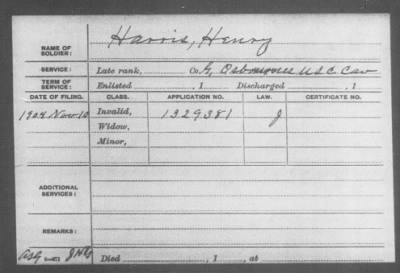 NAME OF SOLDIER: Harris, Henry
SERVICE: Late rank, Co. G, U.S.C. Cav
TERM OF SERVICE: Enlisted , 1 Discharged , 1
DATE OF FILING. CLASS. APPLICATION NO. LAW. CERTIFICATE NO.
1904 Nov. 10 Invalid, 1329381 J
Widow,
Minor,
ADDITIONAL SERVICES:
REMARKS:
Died , 1 , at